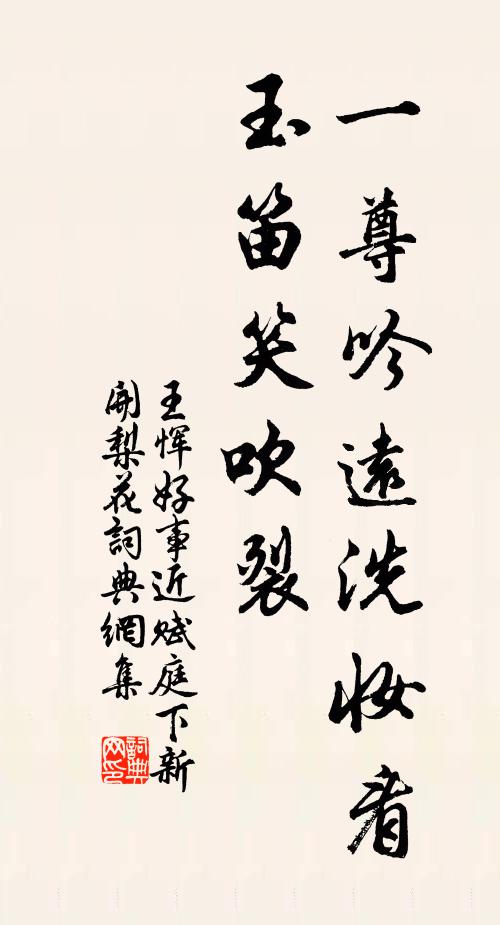 一尊吟遠洗妝看
玉笛笑吹裂
王惲好事近賦庭下新
開梨花詞典網集
詞典
网印